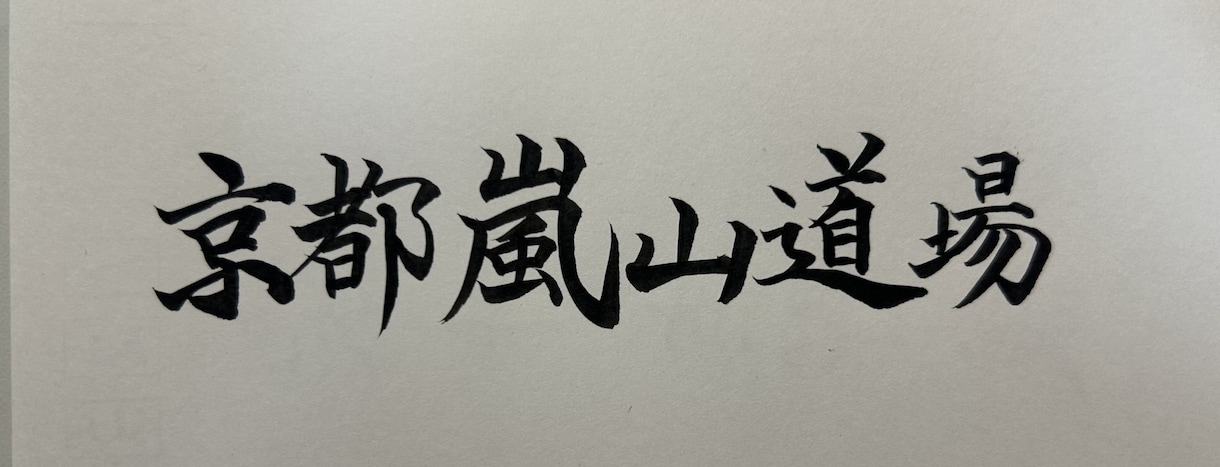 京都嵐山道場